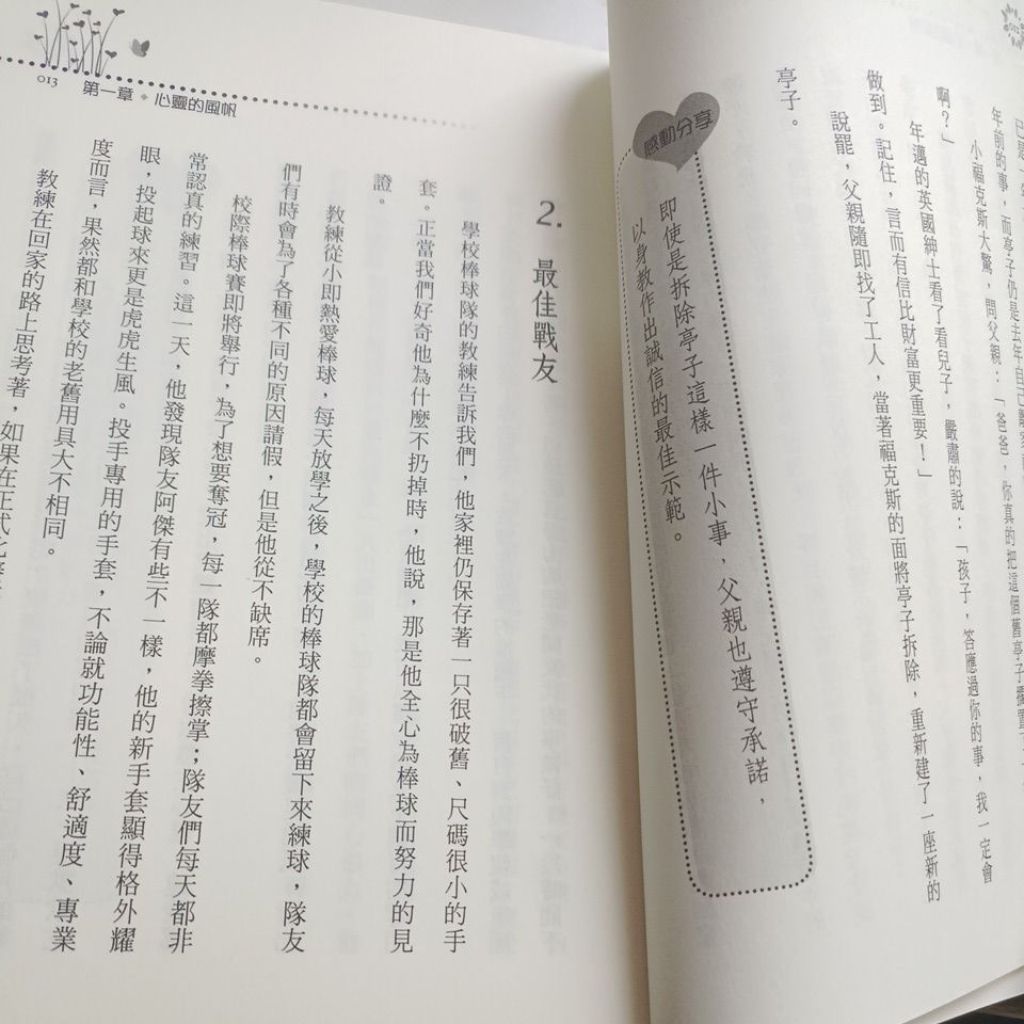 年前的事，而亭子仍是去年自己
小福克斯大驚，問父親：「爸爸，你真的把這個舊亭子
啊？」
年邁的英國紳士看了看兒子，嚴肅的說：「孩子，答應過你的事，我一定會
做到。記住，言而有信比財富更重要！」
說罷，父親隨即找了工人，當著福克斯的面將亭子拆除，重新建了一座新的
亭子。
感動分享
即使是拆除亭子這樣一件小事，父親也遵守承諾，
以身教作出誠信的最佳示範。
013 第一章 心靈的風帆
2. 最佳戰友
學校棒球隊的教練告訴我們，他家裡仍保存著一只很破舊、尺碼很小的手
套。正當我們好奇他為什麼不扔掉時，他說，那是他全心為棒球而努力的見
證。
教練從小即熱愛棒球，每天放學之後，學校的棒球隊都會留下來練球，隊友
們有時會為了各種不同的原因請假，但是他從不缺席。
校際棒球賽即將舉行，為了想要奪冠，每一隊都摩拳擦掌；隊友們每天都非
常認真的練習。這一天，他發現隊友阿傑有些不一樣，他的新手套顯得格外耀
眼，投起球來更是虎虎生風。投手專用的手套，不論就功能性、舒適度、專業
度而言，果然都和學校的老舊用具大不相同。
教練在回家的路上思考著，如果在正式